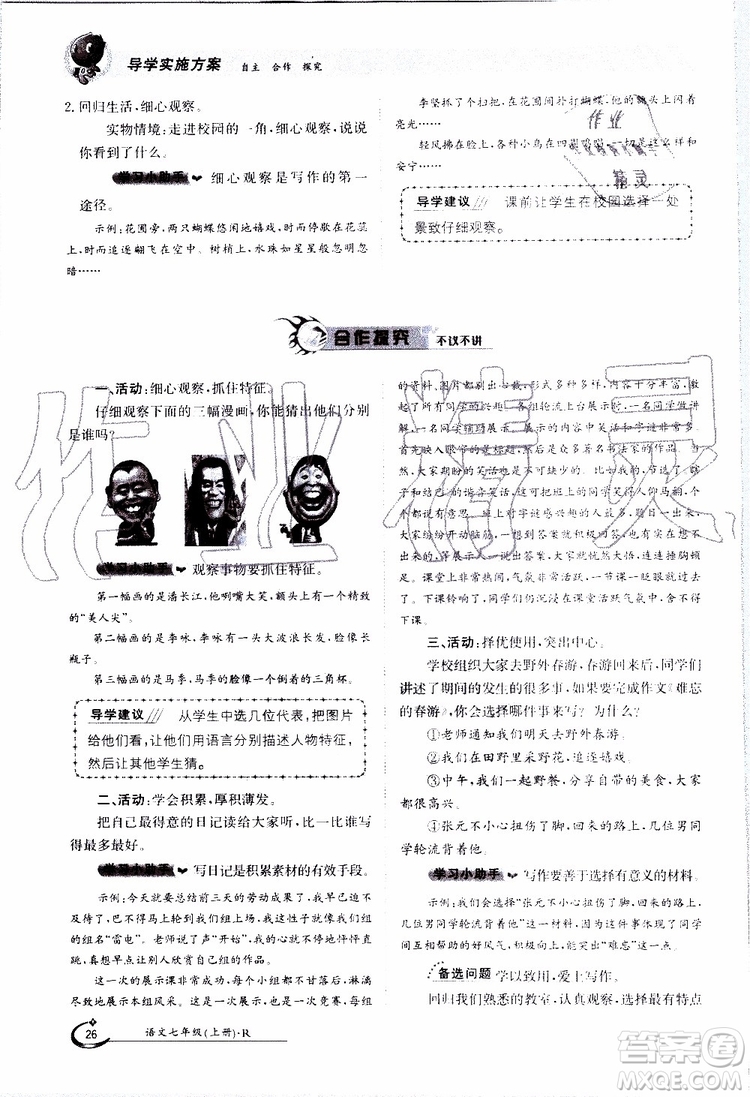 导学实施方案 自主 合作 探究
2. 回归生活,细心观察。
实物情境:走进校园的一角,细心观察,说说
你看到了什么。
学习小助手 细心观察是写作的第一
途径。
示例:花圃旁,两只蝴蝶悠闲地嬉戏,时而在花蕊
上,时而追逐翩飞在空中。树梢上,水珠如星星般忽明忽
暗……
李坚抓了个扫把,在花圃间扑打蝴蝶,他的额头上闪着
亮光……
轻风拂在脸上,各种小鸟在四周鸣唱……一切是这样和
安宁……
作业
精灵
导学建议 课前让学生在校园选择一处
景致仔细观察。
合作探究 不议不讲
一、活动:细心观察,抓住特征。
仔细观察下面的三幅漫画,你能猜出他们分别
是谁吗?
学习小助手 观察事物要抓住特征。
第一幅画的是潘长江,他咧嘴大笑,具有一个精致
的“美人尖”。
第二幅画的是李咏,李咏有一头大波浪长发,脸像长
瓶子。
第三幅画的是马季,马季的脸像一个倒着的三角杯。
导学建议 从学生中选几位代表,把图片
给他们看,让他们用语言分别描述人物特征,
让其他学生猜。
二、活动:学会积累,厚积薄发。
把自己最得意的日记读给大家听,比一比谁写
得最多最好。
学习小助手 写日记是积累素材的有效手段。
示例:今天就要总结前三天的劳动成果了,我早已迫不
及待了,巴不得马上轮到我们组展示,可惜第一组是我们组
的组名“雷电”。老师说了声“开始”,我们组就毫不怦怦直
跳,走到前台去让别人欣赏自己组的作品。
这一次的展示课非常成功,每一个小组都尽心尽力、淋漓
尽致地展示本组采风。这一次既是竞赛,又是合作,每组
的资料、图片都别出心裁,形式多种多样,内容十分丰富,
引起了大家的兴趣。各组轮流上台展示时,一名同学做讲
解,一名同学辅助展示,其中展示的内容中笑话和字谜非常多。
首先映入眼帘的是标题,然后是众多著名书法家的作品。当
然,大家期盼的笑话当然也是必不可少的,每每说到了瞎
子和结巴的谐音笑话,可把班上的同学笑得人仰马翻,我也
笑得肚子都痛了。对字谜感兴趣的人最多,题目一出来,大家
纷纷开动脑筋,一想到答案就积极回答,答案五花八门,各种各
样,等展示组说出答案,大家才恍然大悟,原来是如此。
课堂上非常热闹,气氛非常活跃,时间过得飞快,不一会就
下课铃响了,同学们仍沉浸在课堂活跃气氛中,迟迟不肯
下课。
三、活动:择优使用,突出中心。
学校组织大家去野外春游,春游回来,同学们
讲述了期间的发生的很多事,如果要完成作文《难忘
的春游》,你会选择哪件事来写?为什么?
①老师通知我们明天去野外春游。
②我们在田野里采野花,追逐嬉戏。
③中午,我们一起野餐,分享自带的美食,大家
都很高兴。
④张元不小心扭伤了脚,回来的路上,几位男同
学轮流背着他。
学习小助手 写作要善于选择有意义的材料。
示例:我会选择“张元不小心扭伤了脚,回来的路上,
几位男同学轮流背着他”这一材料,这件事体现了同学间
互相帮助的好风气,积极向上,能突出“难忘”这一点。
备选问题 学以致用,爱上写作。
回归我们熟悉的教室,认真观察,选择最有特点
26 语文七年级(上册)·R
作业精灵
答案圈
MXQE.COM